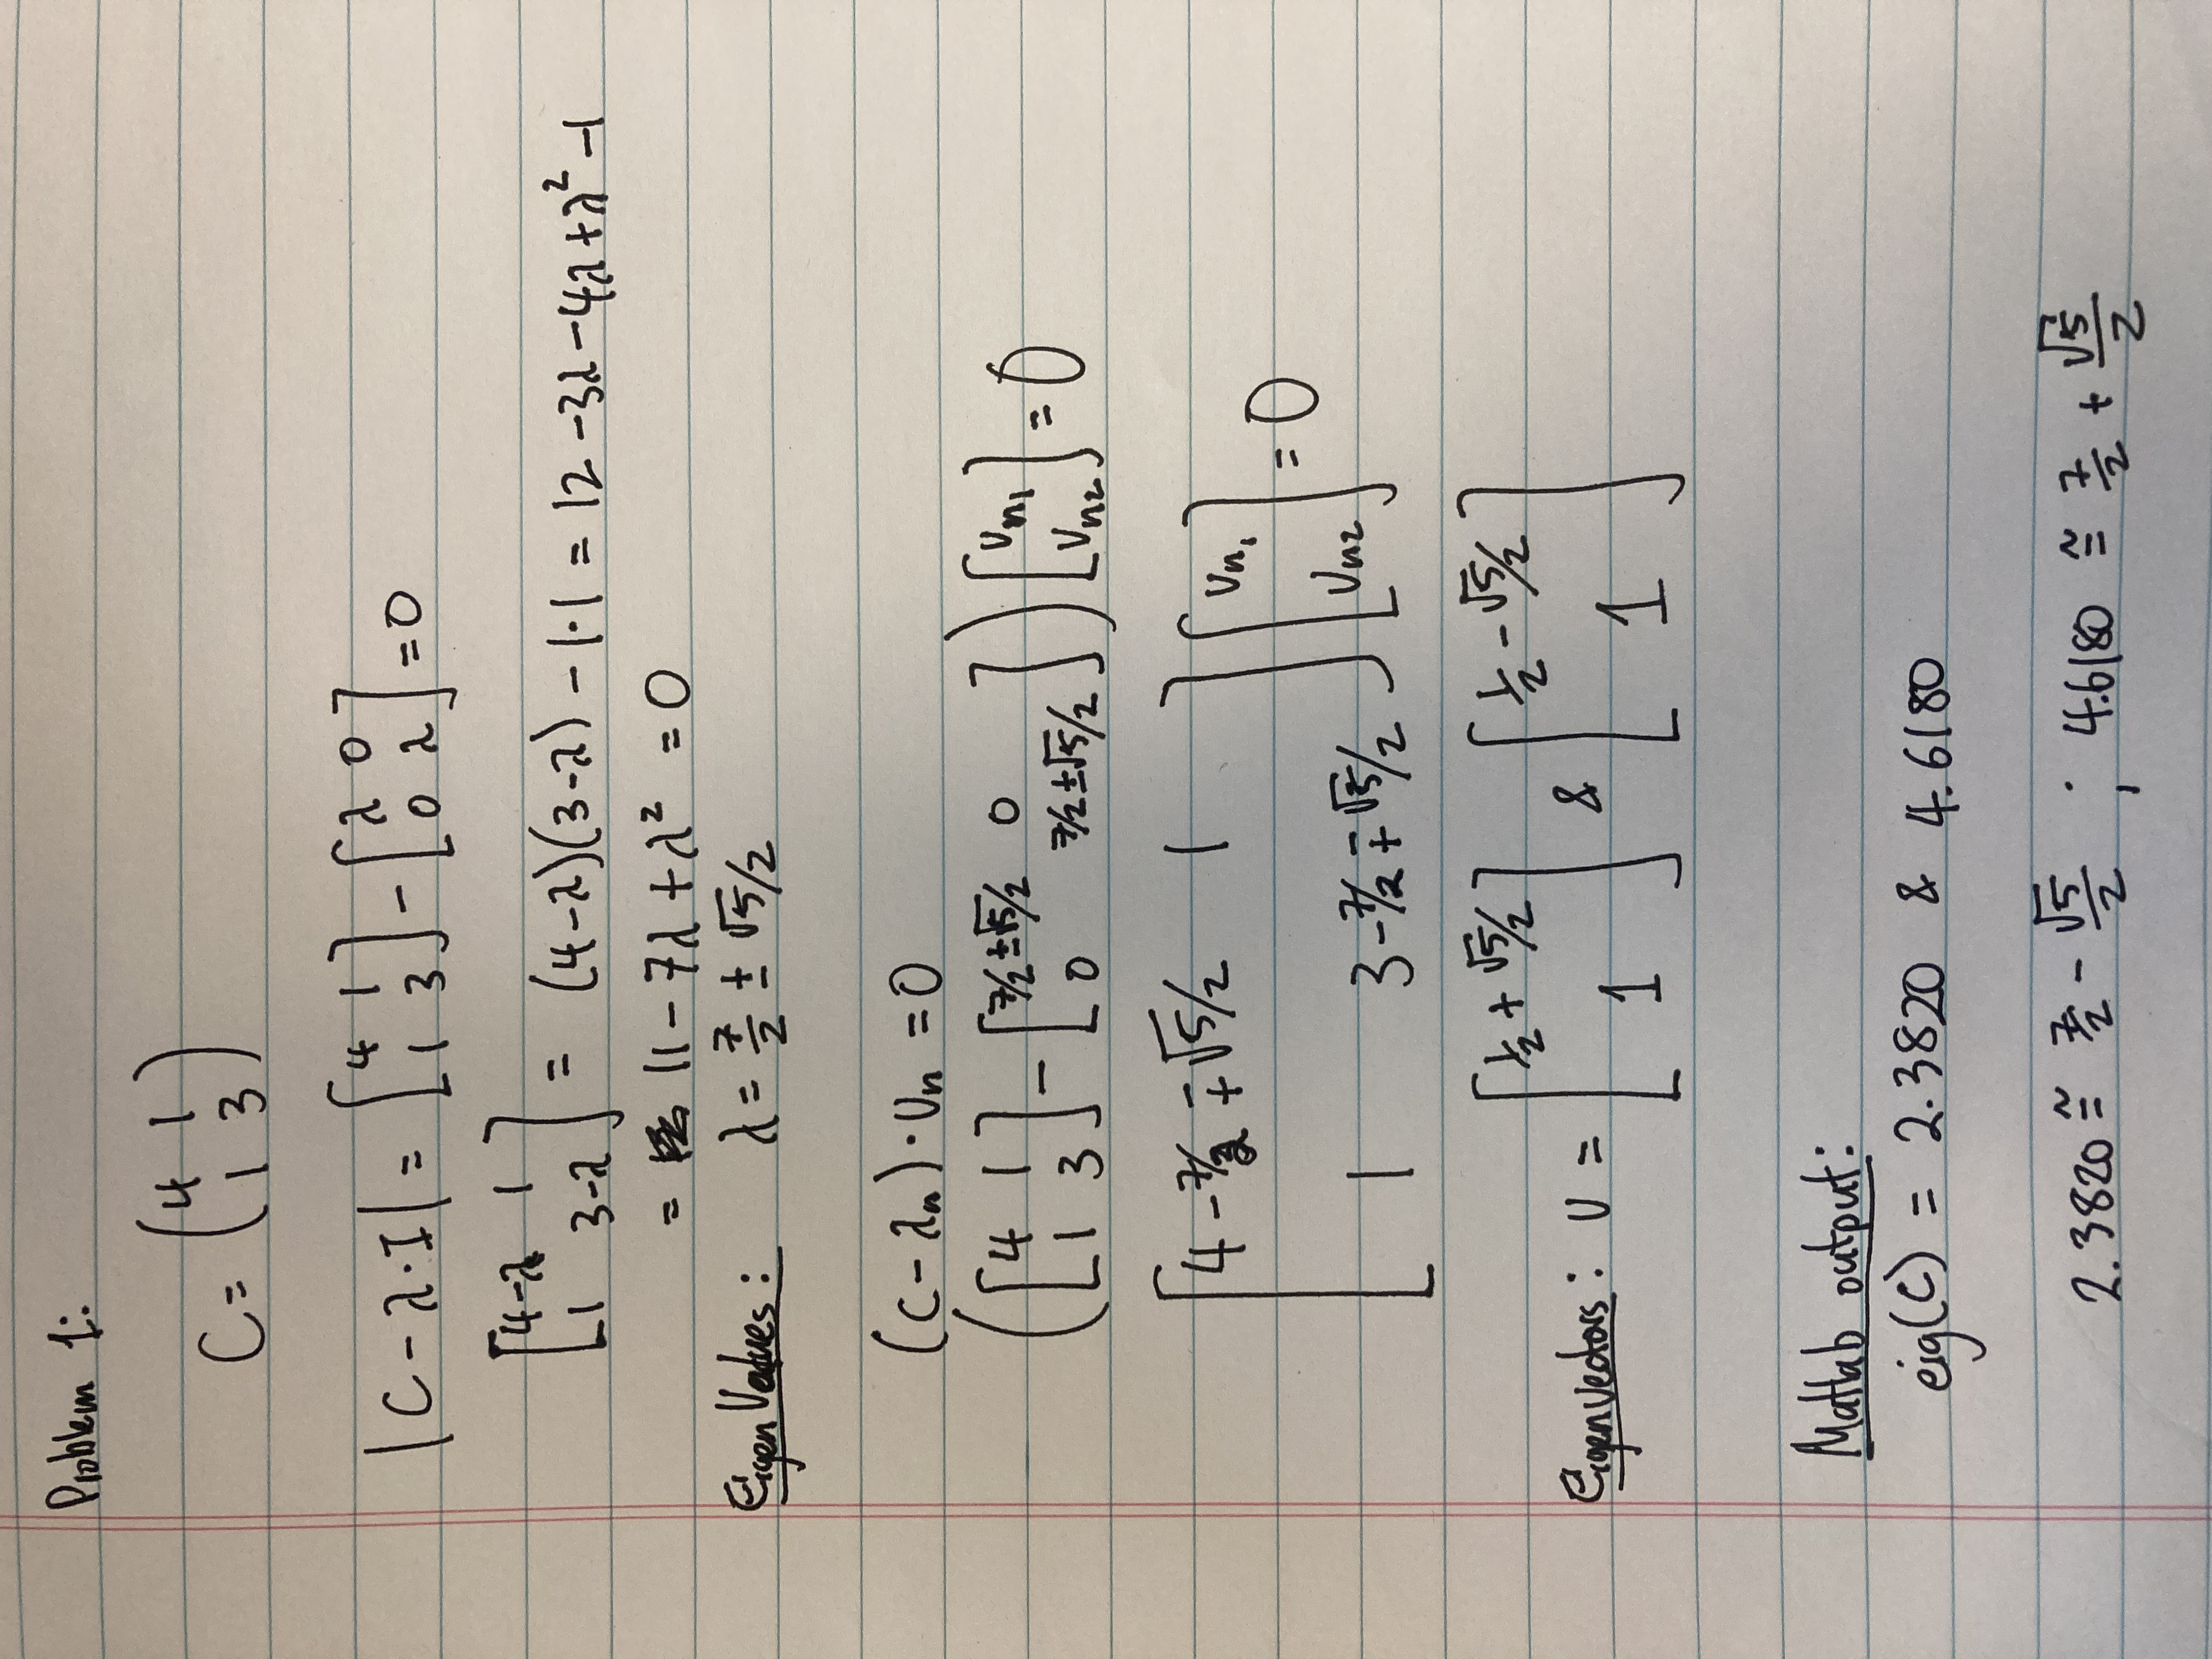 Problem 1:
C = (4 1
1 3)
|C - λ·I| = [4 1
1 3] - [λ 0
0 λ] = 0
[4-λ 1
1 3-λ] = (4-λ)(3-λ) - 1·1 = 12 - 3λ - 4λ + λ² - 1
= 11 - 7λ + λ² = 0
Eigen Values: λ = 7/2 ± √5/2
(C - λn)·Un = 0
([4 1
1 3] - [7/2±√5/2 0
0 7/2±√5/2]) [Un1
Un2] = 0
[4 - 7/2 ∓ √5/2 1
1 3 - 7/2 ∓ √5/2] [Un1
Un2] = 0
Eigenvectors: U = [1/2 + √5/2
1] & [1/2 - √5/2
1]
Matlab output:
eig(C) = 2.3820 & 4.6180
2.3820 ≅ 7/2 - √5/2 ; 4.6180 ≅ 7/2 + √5/2